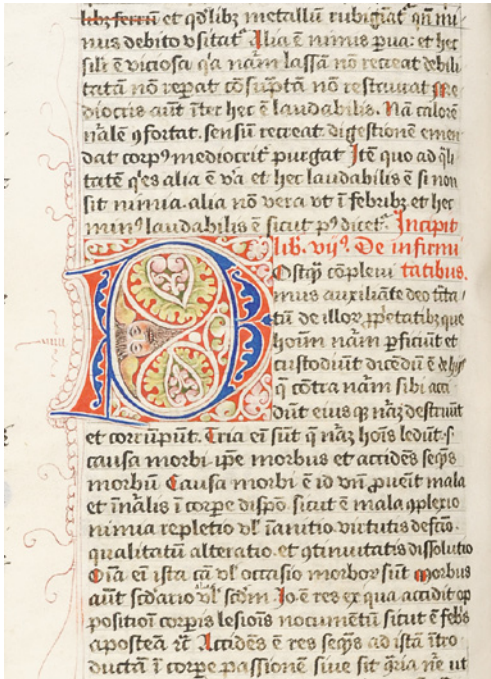 libz ferrū et qdlibz metallū rubigīat qn mi
nus debito vsitat Alia ē nimis pua: et hec
sīlr ē viciosa qa nam lassā nō recreat debili
tatā nō repat cōsūptā nō restaurat Me
diocris aūt īter hec ē laudabilis. Nā calorē
nalē ꝯfortat. sensū recreat digestionē emen
dat corpꝰ mediocrit purgat Itē quo ad qli
tatē qes alia ē va et hec laudabilis ē si non
sit nimia. alia nō vera vt ī febribz et hec
minꝰ laudabilis ē sicut pꝰ dicet. Incipit
lib. vijꝰ. De infirmi
Ostq cōpleui tatibus.
mus auxiliāte deo
tū de illoꝝ ꝓpetatibz que
hoīum nām ꝑficiūt et
custodiūt dicēdū ē de
q cōtra nām sibi acci
dūt eius destruūt
et corrūpūt. Tria eī sūt q naz hoīs ledūt. s
causa morbi. ipe morbus et accidēs seqns
morbū Causa morbi ē id vn ꝓueīt mala
et īnalis ī corpe dispō sicut ē mala ꝯplexio
nimia repletio vl īanitio virtutis defcū
qualitatū alteratio. et ꝯtinuitatis dissolutio
Oīa eī ista cā vl occasio morboꝝ sūt Morbus
aūt scdario vl scdm Io ē res ex qua accidit op
positioī corpis lesioīs nocumētū sicut ē febs
apostea ꝛc Accidēs ē res seqns ad istā ītro
ductā ī corpe passionē siue sit ꝯria ne ut